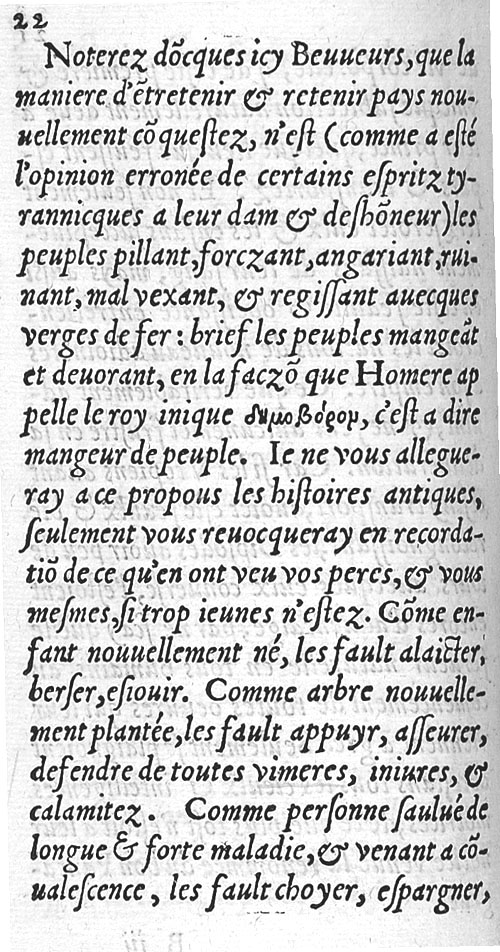 22
Noterez dõcques icy Beuueurs, que la
maniere d'ẽtretenir & retenir pays nou-
uellement cõqueſtez, n'eſt (comme a eſté
l'opinion erronée de certains eſpritz ty-
rannicques a leur dam & deſhõneur) les
peuples pillant, forczant, angariant, rui-
nant, mal vexant, & regiſſant auecques
verges de fer: brief les peuples mangeãt
et deuorant, en la faczõ que Homere ap
pelle le roy inique δημοβόρομ, c'eſt a dire
mangeur de peuple. Ie ne vous allegue-
ray a ce propous les hiſtoires antiques,
ſeulement vous reuocqueray en recorda-
tiõ de ce qu'en ont veu vos peres, & vous
meſmes, ſi trop ieunes n'eſtez. Cõme en-
fant nouuellement né, les fault alaicter,
berſer, eſiouir. Comme arbre nouuelle-
ment plantée, les fault appuyr, aſſeurer,
defendre de toutes vimeres, iniures, &
calamitez. Comme perſonne ſaulué de
longue & forte maladie, & venant a cõ-
ualeſcence, les fault choyer, eſpargner,